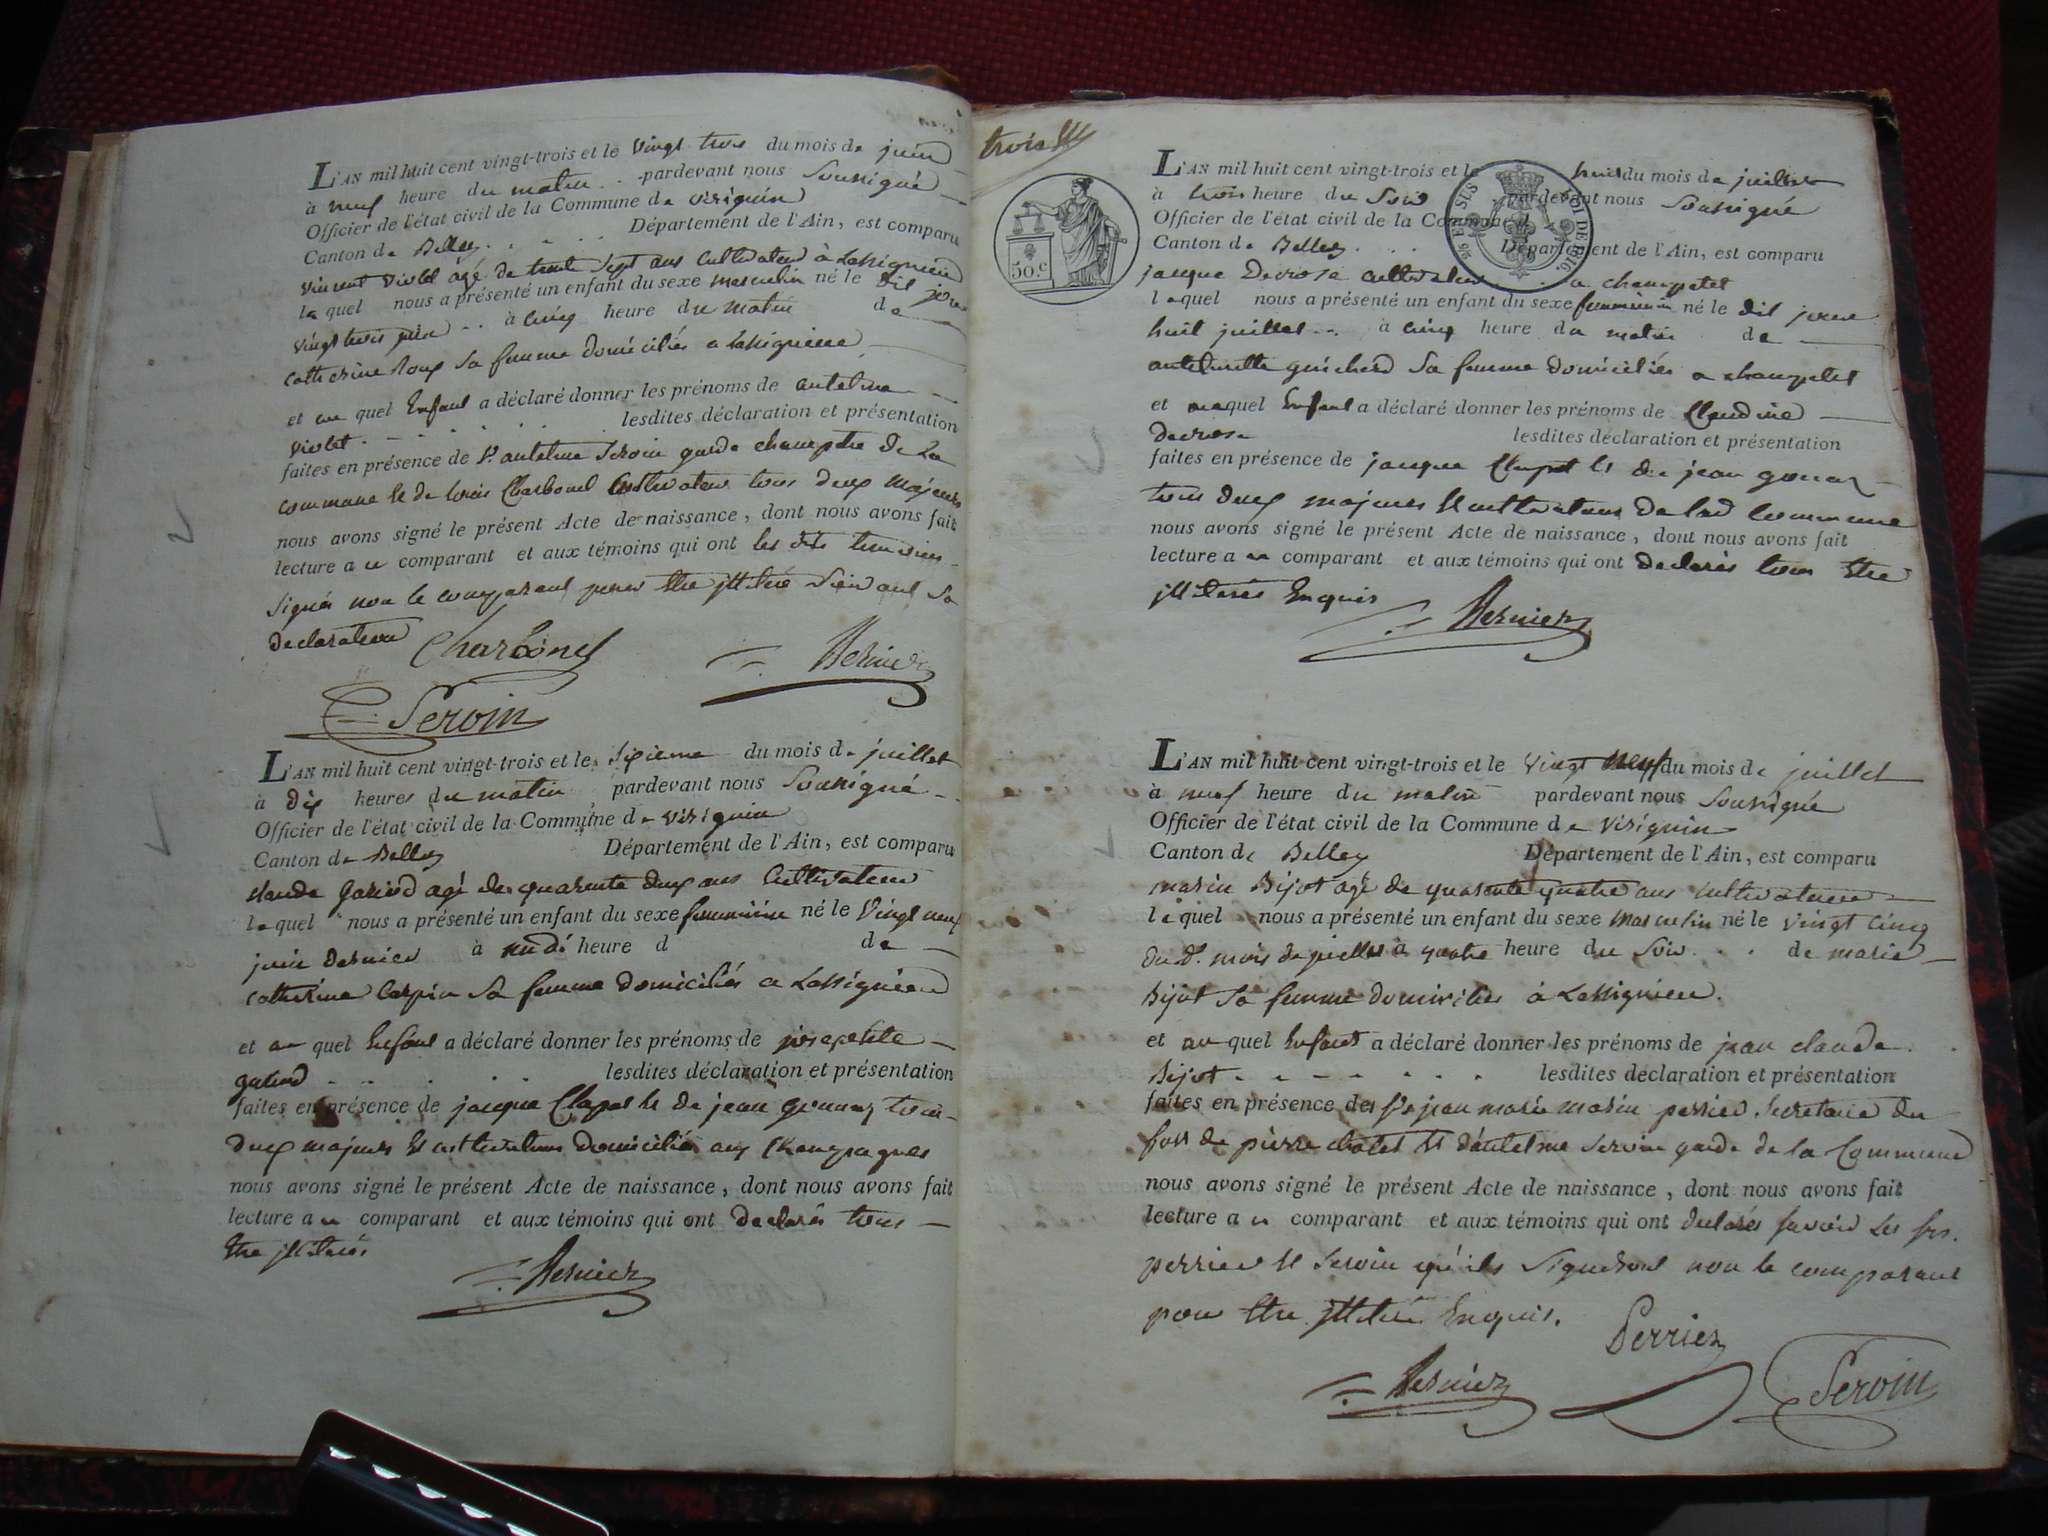 L'AN mil huit cent vingt-trois et le vingt trois du mois de juin
à neuf heure du matin pardevant nous Soussigné
Officier de l'état civil de la Commune de virignin
Canton de Belley Département de l'Ain, est comparu
vincent violet agé de trente sept ans cultivateur à Lassignieu
lequel nous a présenté un enfant du sexe masculin né le dit jour
vingt trois juin à cinq heure du matin de
catherine roux sa femme domiciliés a Lassignieu
et au quel Enfant a déclaré donner les prénoms de antelme
violet lesdites déclaration et présentation
faites en présence de Sr antelme Servin garde champetre de La
commune et de louis Charbonel Cultivateur tous deux majeurs
nous avons signé le présent Acte de naissance, dont nous avons fait
lecture a u comparant et aux témoins qui ont les dits temoins
signés non le comparant pour être illitéré suivant sa
declaration Charbonel
Bernier
Servin
L'AN mil huit cent vingt-trois et le sixieme du mois de juillet
à dix heures du matin pardevant nous Soussigné
Officier de l'état civil de la Commune de virignin
Canton de Belley Département de l'Ain, est comparu
claude agé de quarante deux ans Cultivateur
lequel nous a présenté un enfant du sexe femminin né le Vingt neuf
juin dernier à midi heure d de
catherine Carpin sa femme domiciliés a Lassignieu
et au quel Enfant a déclaré donner les prénoms de josephte
lesdites déclaration et présentation
faites en présence de jacque Clapet et de jean gonnet tous
deux majeurs et cultivateurs domiciliés aux Champagnes
nous avons signé le présent Acte de naissance, dont nous avons fait
lecture a u comparant et aux témoins qui ont declarés tous
être illiterés
Bernier
trois
50.c
L'AN mil huit cent vingt-trois et le huit du mois de juillet
à trois heure du Soir pardevant nous Soussigné
Officier de l'état civil de la Commune d
Canton de Belley Département de l'Ain, est comparu
jacque Decrose cultivateur a champetel
lequel nous a présenté un enfant du sexe femminin né le dit jour
huit juillet à cinq heure du matin de
antelmette guicherd sa femme domiciliés a champetel
et auquel Enfant a déclaré donner les prénoms de Claudine
decrose lesdites déclaration et présentation
faites en présence de jacque Clapet et de jean gonnet
tous deux majeurs et cultivateurs de lad Commune
nous avons signé le présent Acte de naissance, dont nous avons fait
lecture a u comparant et aux témoins qui ont declarés tous être
illiterés Enquis
Bernier
L'AN mil huit cent vingt-trois et le vingt neuf du mois de juillet
à neuf heure du matin pardevant nous Soussigné
Officier de l'état civil de la Commune de virignin
Canton de Belley Département de l'Ain, est comparu
marin Bijot agé de quarente quatre ans cultivateur
lequel nous a présenté un enfant du sexe masculin né le vingt cinq
du d. mois de juillet à quatre heure du Soir de marie
Bijot sa femme domiciliés à Lassignieu.
et au quel Enfant a déclaré donner les prénoms de jean claude
Bijot lesdites déclaration et présentation
faites en présence des Srs jean marie marin perrier Secretaire du
fort de pierre chatel et d'antelme Servin garde de la Commune
nous avons signé le présent Acte de naissance, dont nous avons fait
lecture a u comparant et aux témoins qui ont declarés savoir Les srs.
perrier et Servin qu'ils signeront non le comparant
pour être illitéré Enquis.
Perrier
Bernier
Servin